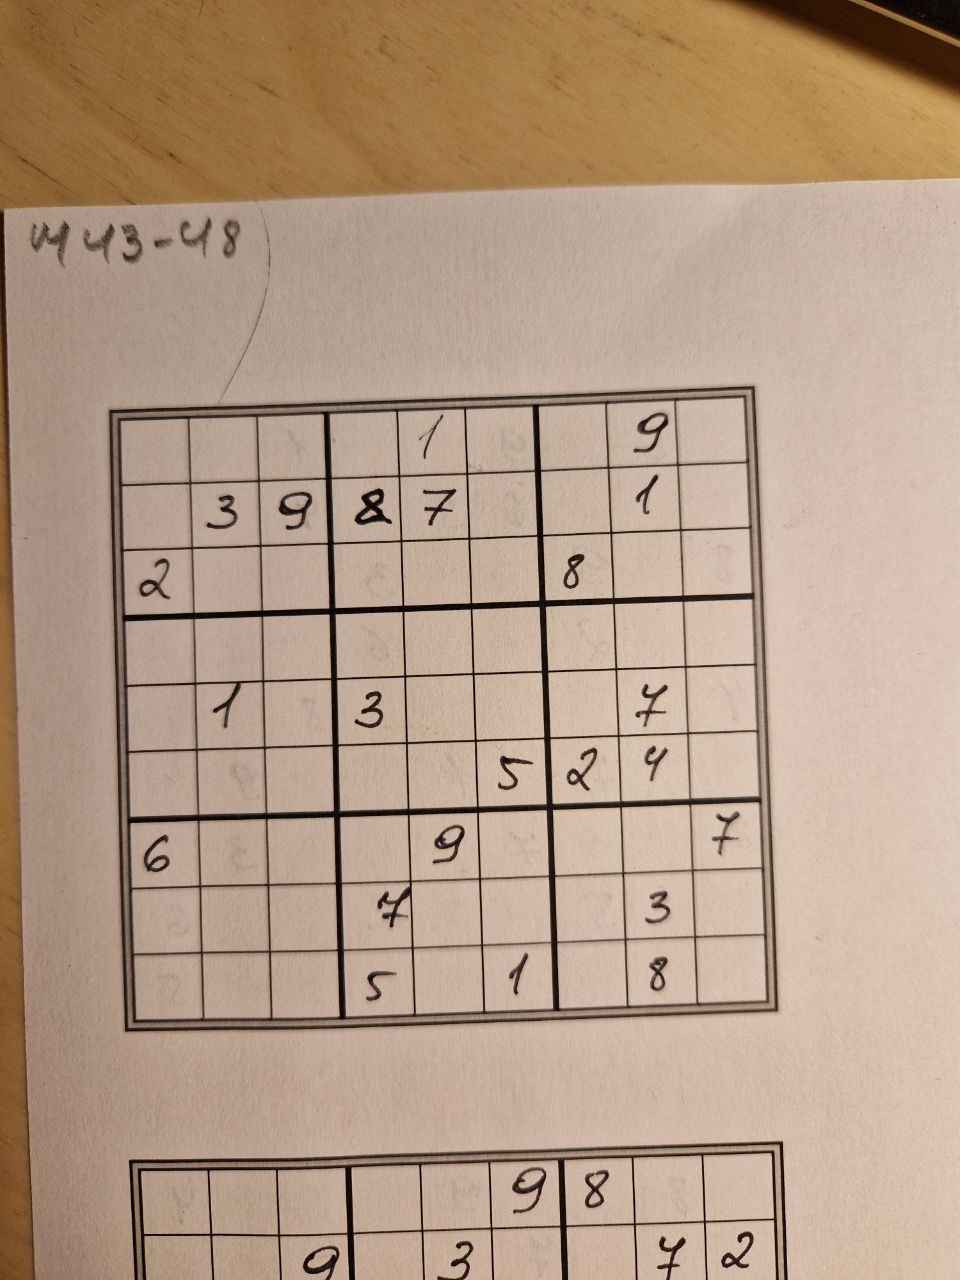 43-48
1 9
3 9 8 7 1
2 8
1 3 7
5 2 4
6 9 7
7 3
5 1 8
9 8
9 3 7 2